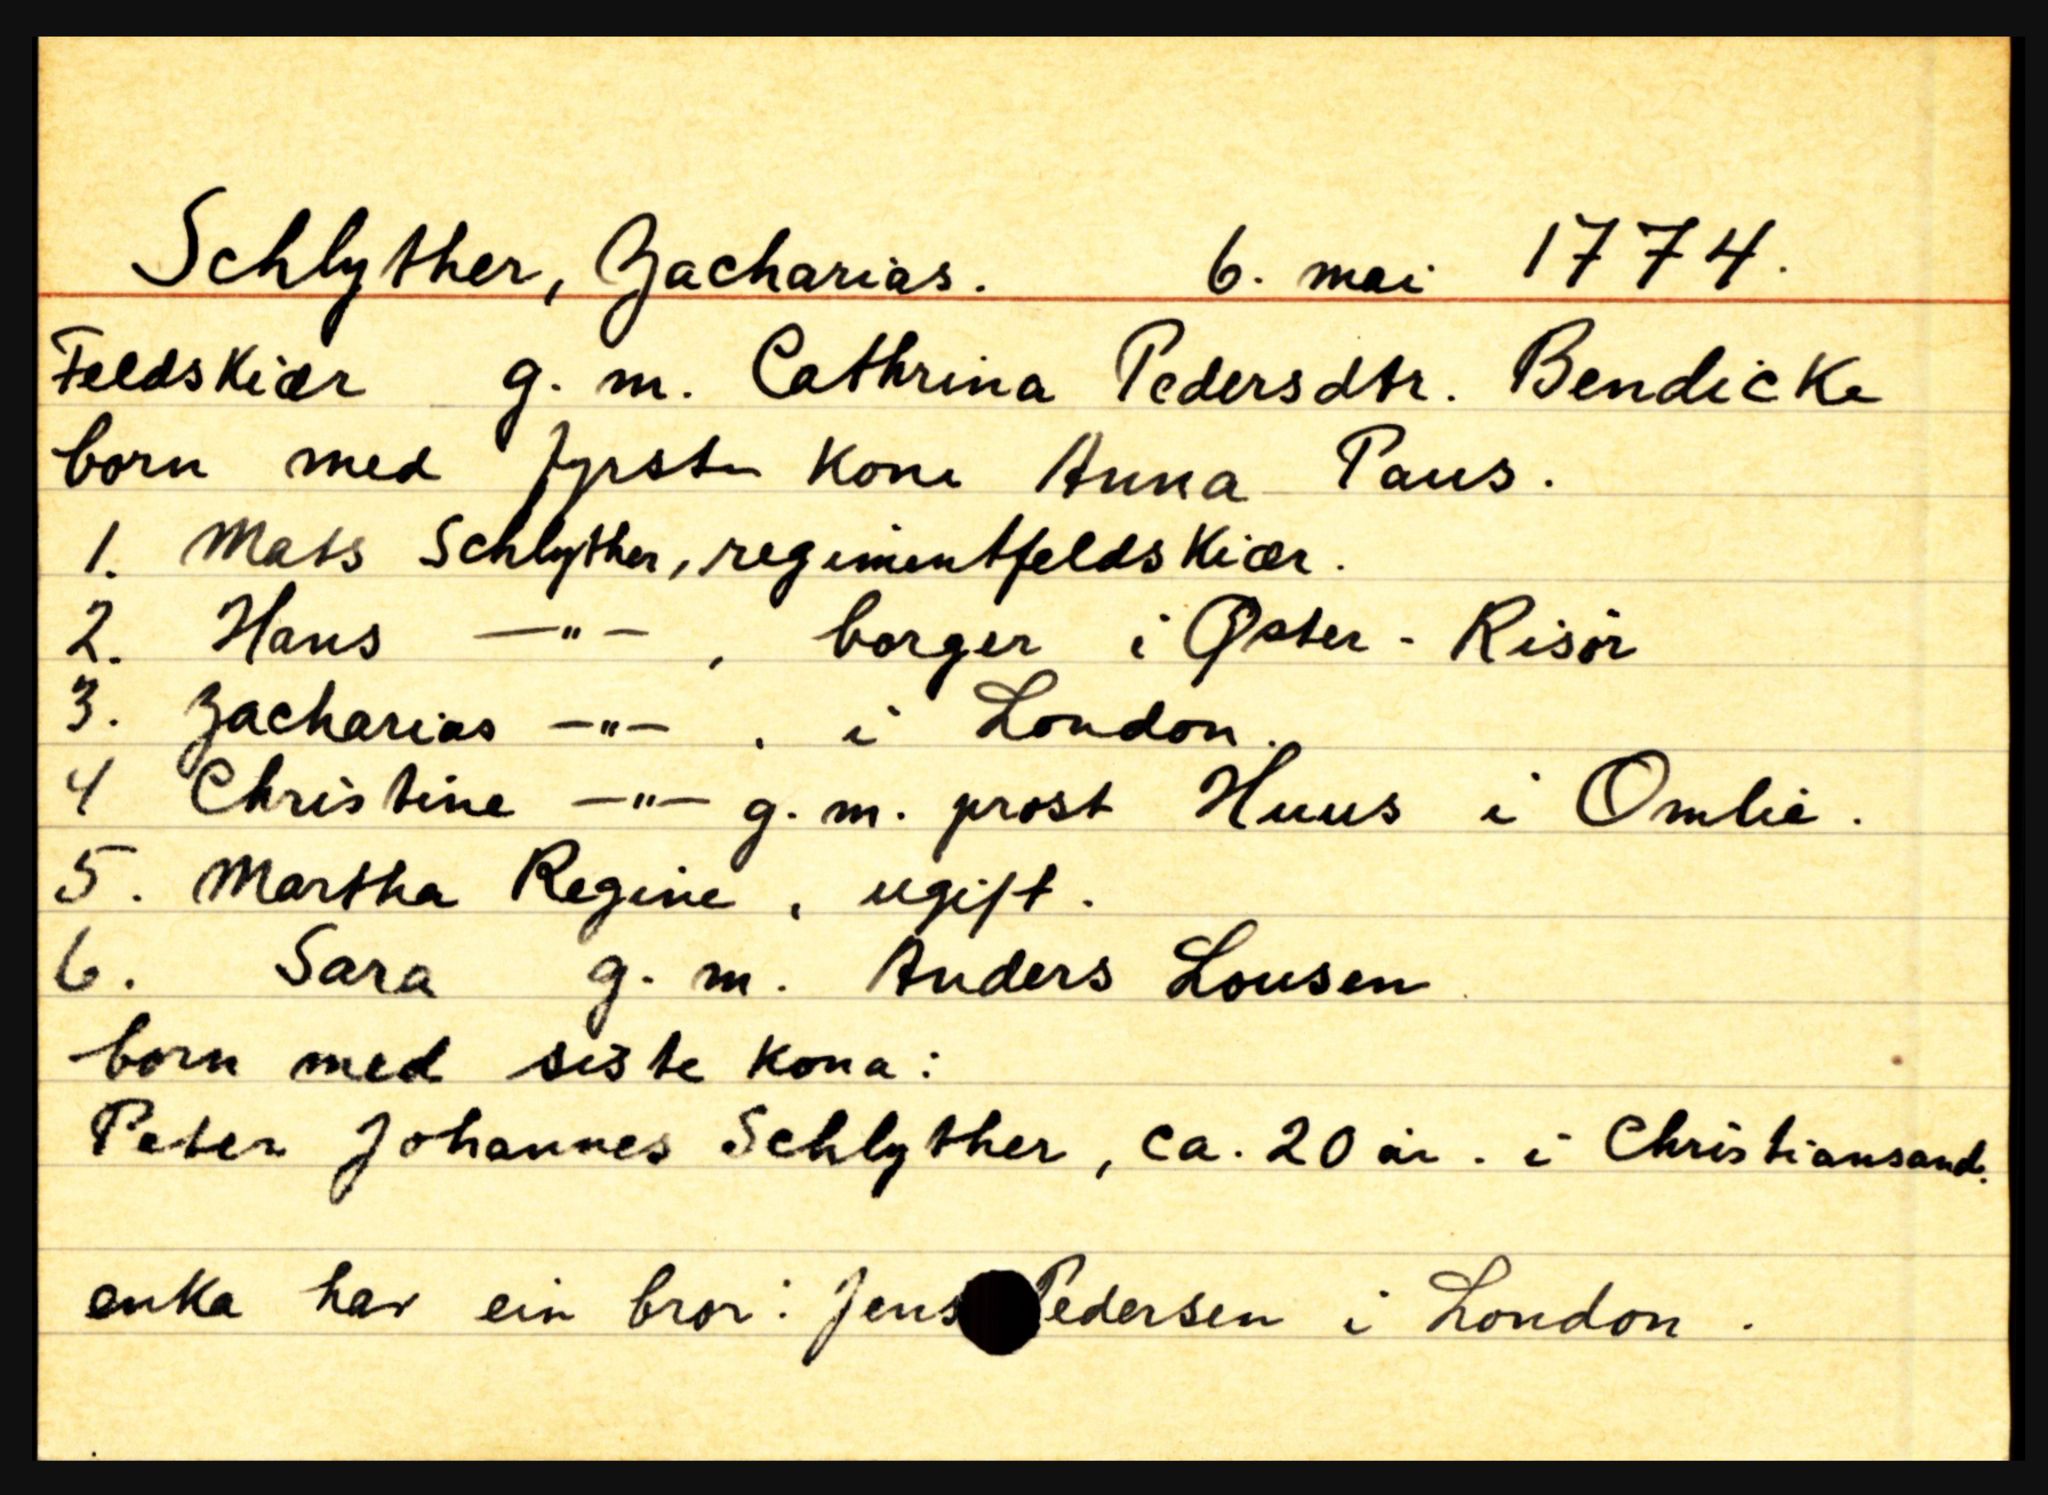 Schlyther, Zacharias. 6. mai 1774.
Feldskiær g. m. Cathrina Pedersdtr. Bendicke
born med fyrste kone Anna Paus.
1. Mats Schlyther, regimentfeldskiær.
2. Hans —"— , borger i Øster - Risör
3. Zacharias —"— , i London.
4 Christine —"— g. m. prost Huus i Omlie.
5. Martha Regine, ugift.
6. Sara g. m. Anders Lousen
born med siste kona:
Peter Johannes Schlyther, ca. 20 år. i Christiansand.
enka har ein bror: Jens Pedersen i London.